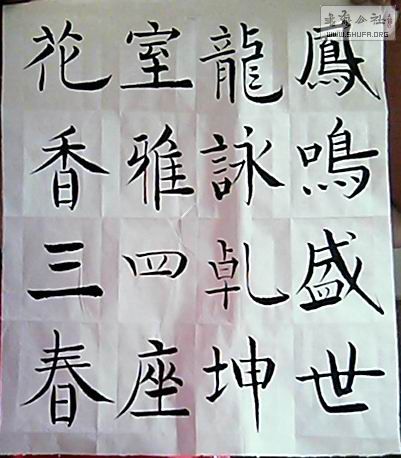 鳳鳴盛世
龍詠乹坤
室雅四座
花香三春
书法公社
WWW.SHUFA.ORG